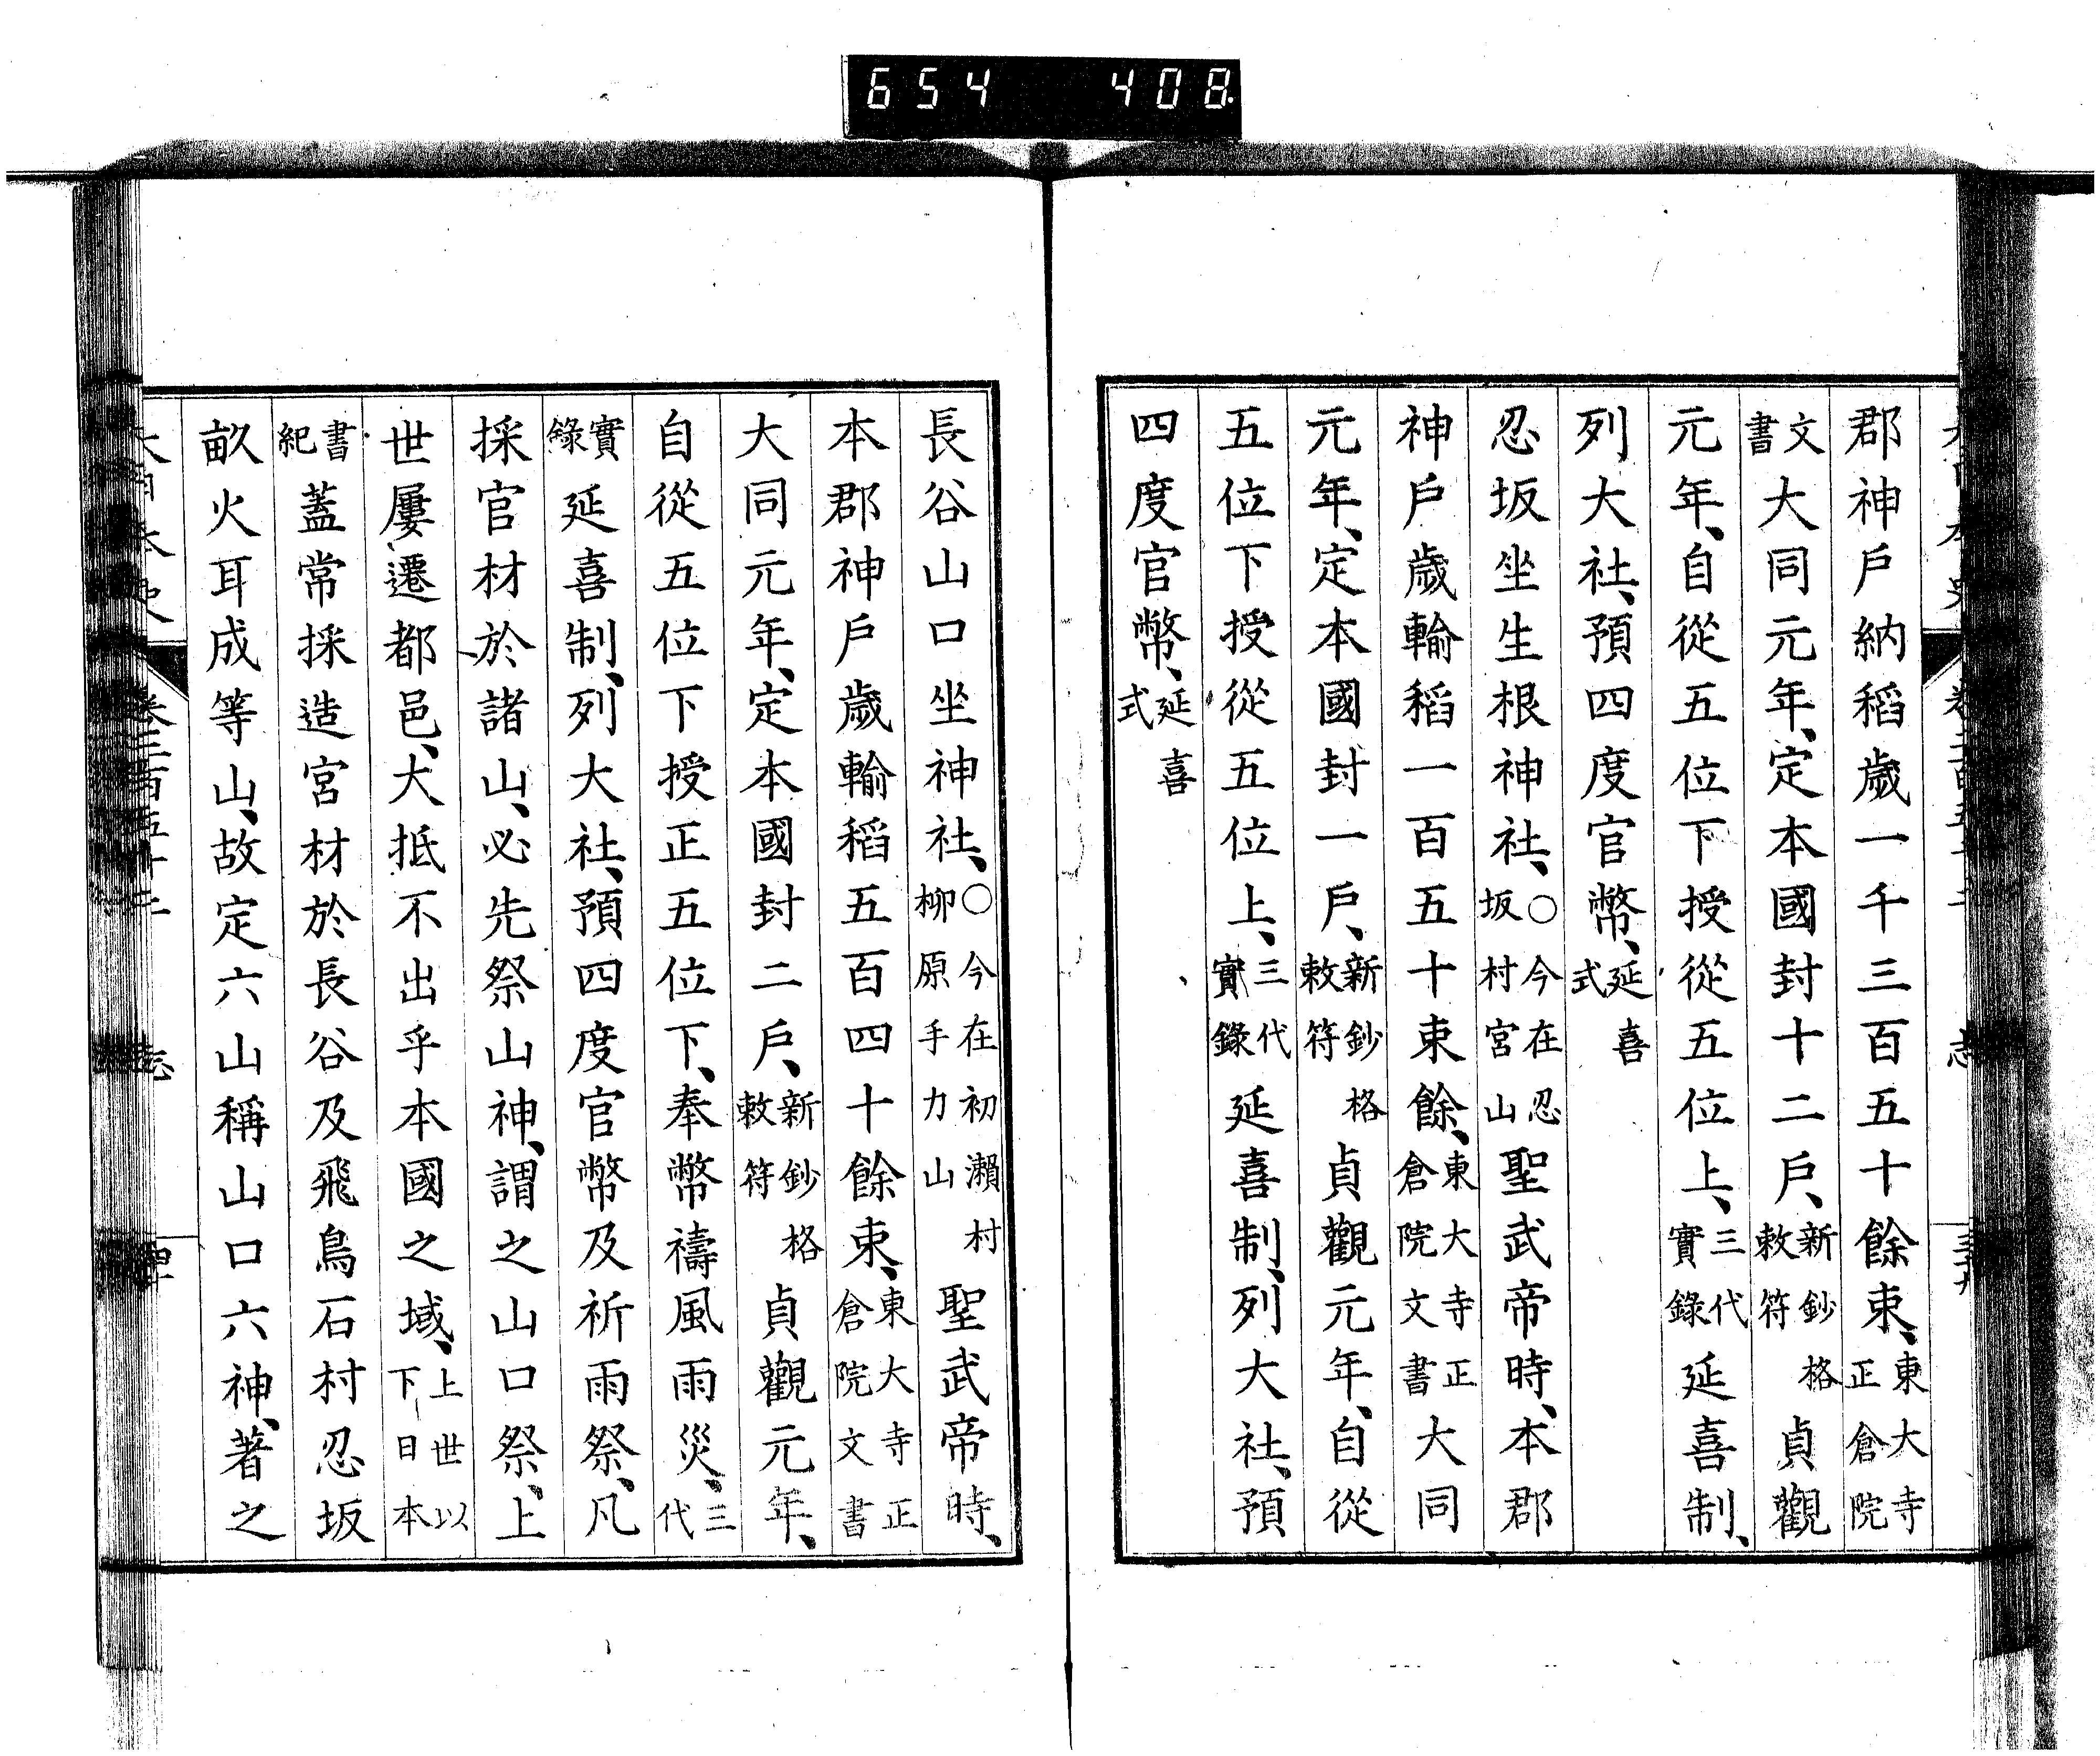 654 408
郡神戶納稻歲一千三百五十餘束、東大寺正倉院
文書大同元年、定本國封十二戶、新鈔格敕符貞觀
元年、自從五位下授從五位上、三代實錄延喜制、
列大社、預四度官幣、延喜式
忍坂坐生根神社、○今在忍坂村宮山聖武帝時、本郡
神戶歲輸稻一百五十束餘、東大寺正倉院文書大同
元年、定本國封一戶、新鈔格敕符貞觀元年、自從
五位下授從五位上、三代實錄延喜制、列大社、預
四度官幣、延喜式
長谷山口坐神社、○今在初瀨村柳原手力山聖武帝時、
本郡神戶歲輸稻五百四十餘束、東大寺正倉院文書
大同元年、定本國封二戶、新鈔格敕符貞觀元年、
自從五位下授正五位下、奉幣禱風雨災、三代
實錄延喜制、列大社、預四度官幣及祈雨祭、凡
採官材於諸山、必先祭山神、謂之山口祭、上
世屢遷都邑、大抵不出乎本國之域、上世以下日本
書紀蓋常採造宮材於長谷及飛鳥石村忍坂
畝火耳成等山、故定六山稱山口六神、著之